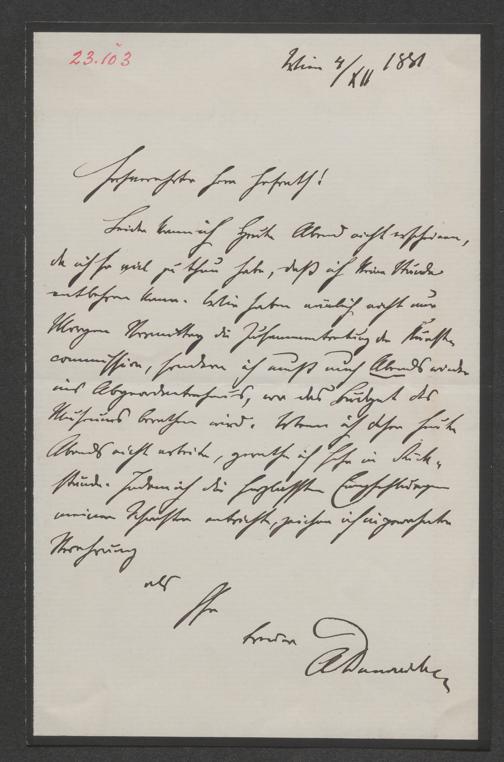 23.103
Wien 4/XII 1881
Hochverehrter Herr Hofrath!
Leider kann ich heute Abend nicht erscheinen,
da ich so viel zu thun habe, daß ich keine Stunde
entbehren kann. Wir haben nämlich nicht nur
Morgen Vormittag die Zusammentretung der Kunst-
commission, sondern ich muß auch Abends wieder
ins Abgeordnetenhaus, wo das Budget des
Museums berathen wird. Wenn ich also heute
Abends nicht arbeite, gerathe ich sehr in Rück-
stände. Indem ich die herzlichsten Empfehlungen
meiner Schwester entrichte, zeichne ich in gewohnter
Verehrung
als
Ihr